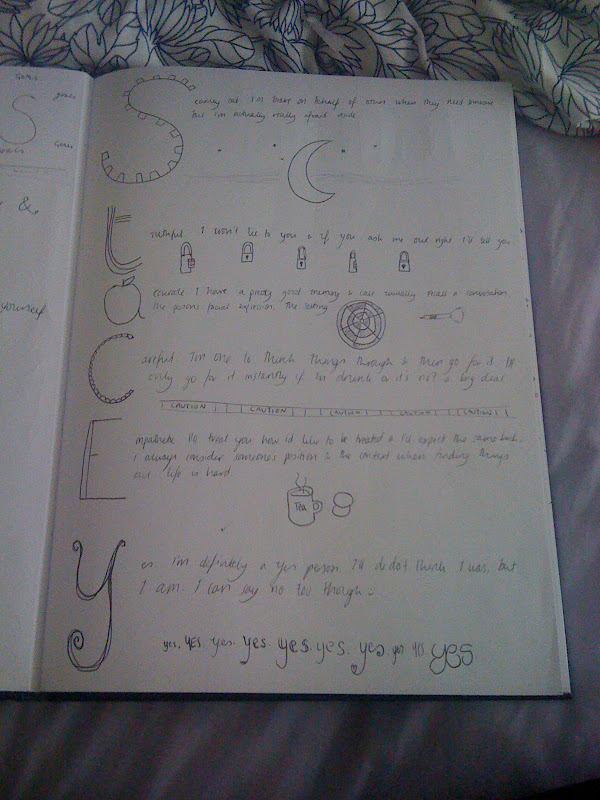 Goals
goals
S
Goals
goals
&
yourself
S
coming out I'm brave on behalf of others when they need someone
but I'm actually really afraid inside
t ruthful I won't lie to you & if you ask me out right I'll tell you
a ccurate I have a pretty good memory & can usually recall a conversation,
the persons facial expression, the setting
C areful I'm one to think things through & then go for it I'll
only go for it instantly if I'm drunk or it's not a big deal
CAUTION CAUTION CAUTION CAUTION CAUTION
E mpathetic I'll treat you how I'd like to be treated & I'd expect the same back.
I always consider someone's position & the context when finding things
out life is hard.
Tea
Y es. I'm definitely a yes person I didn't think I was, but
I am. I can say no too though
yes, YES. yes. yes. yes. yes. yes. yes YES. yes